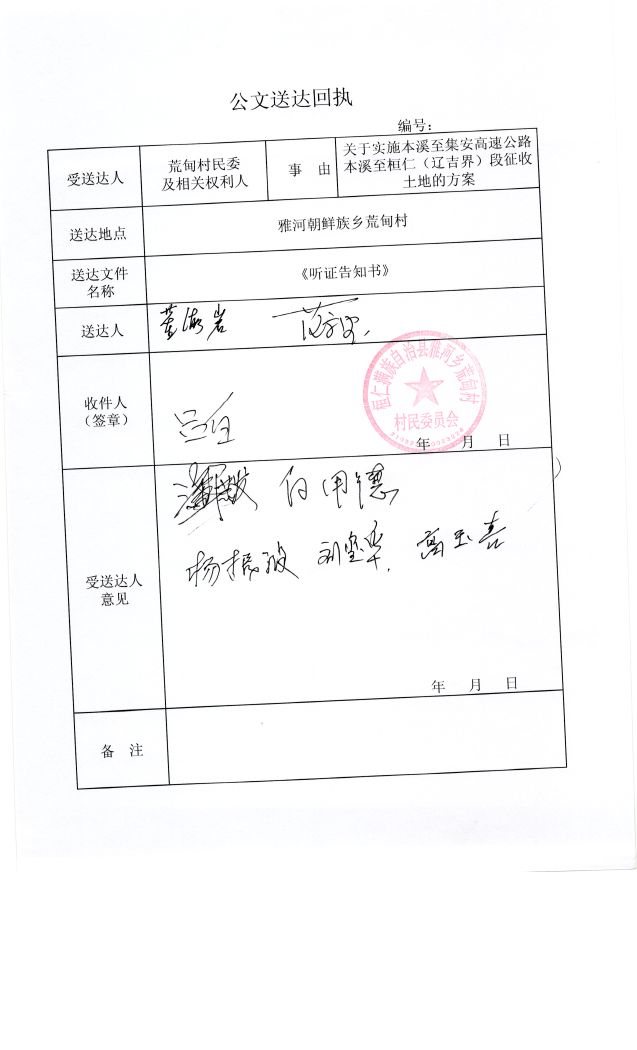 公文送达回执
编号：
受送达人
荒甸村民委
及相关权利人
事 由
关于实施本溪至集安高速公路
本溪至桓仁（辽吉界）段征收
土地的方案
送达地点
雅河朝鲜族乡荒甸村
送达文件
名称
《听证告知书》
送达人
董海岩
收件人
（签章）
桓仁满族自治县雅河乡荒甸村
村民委员会
年 月 日
受送达人
意见
杨振波 刘宝华 高玉喜
年 月 日
备 注